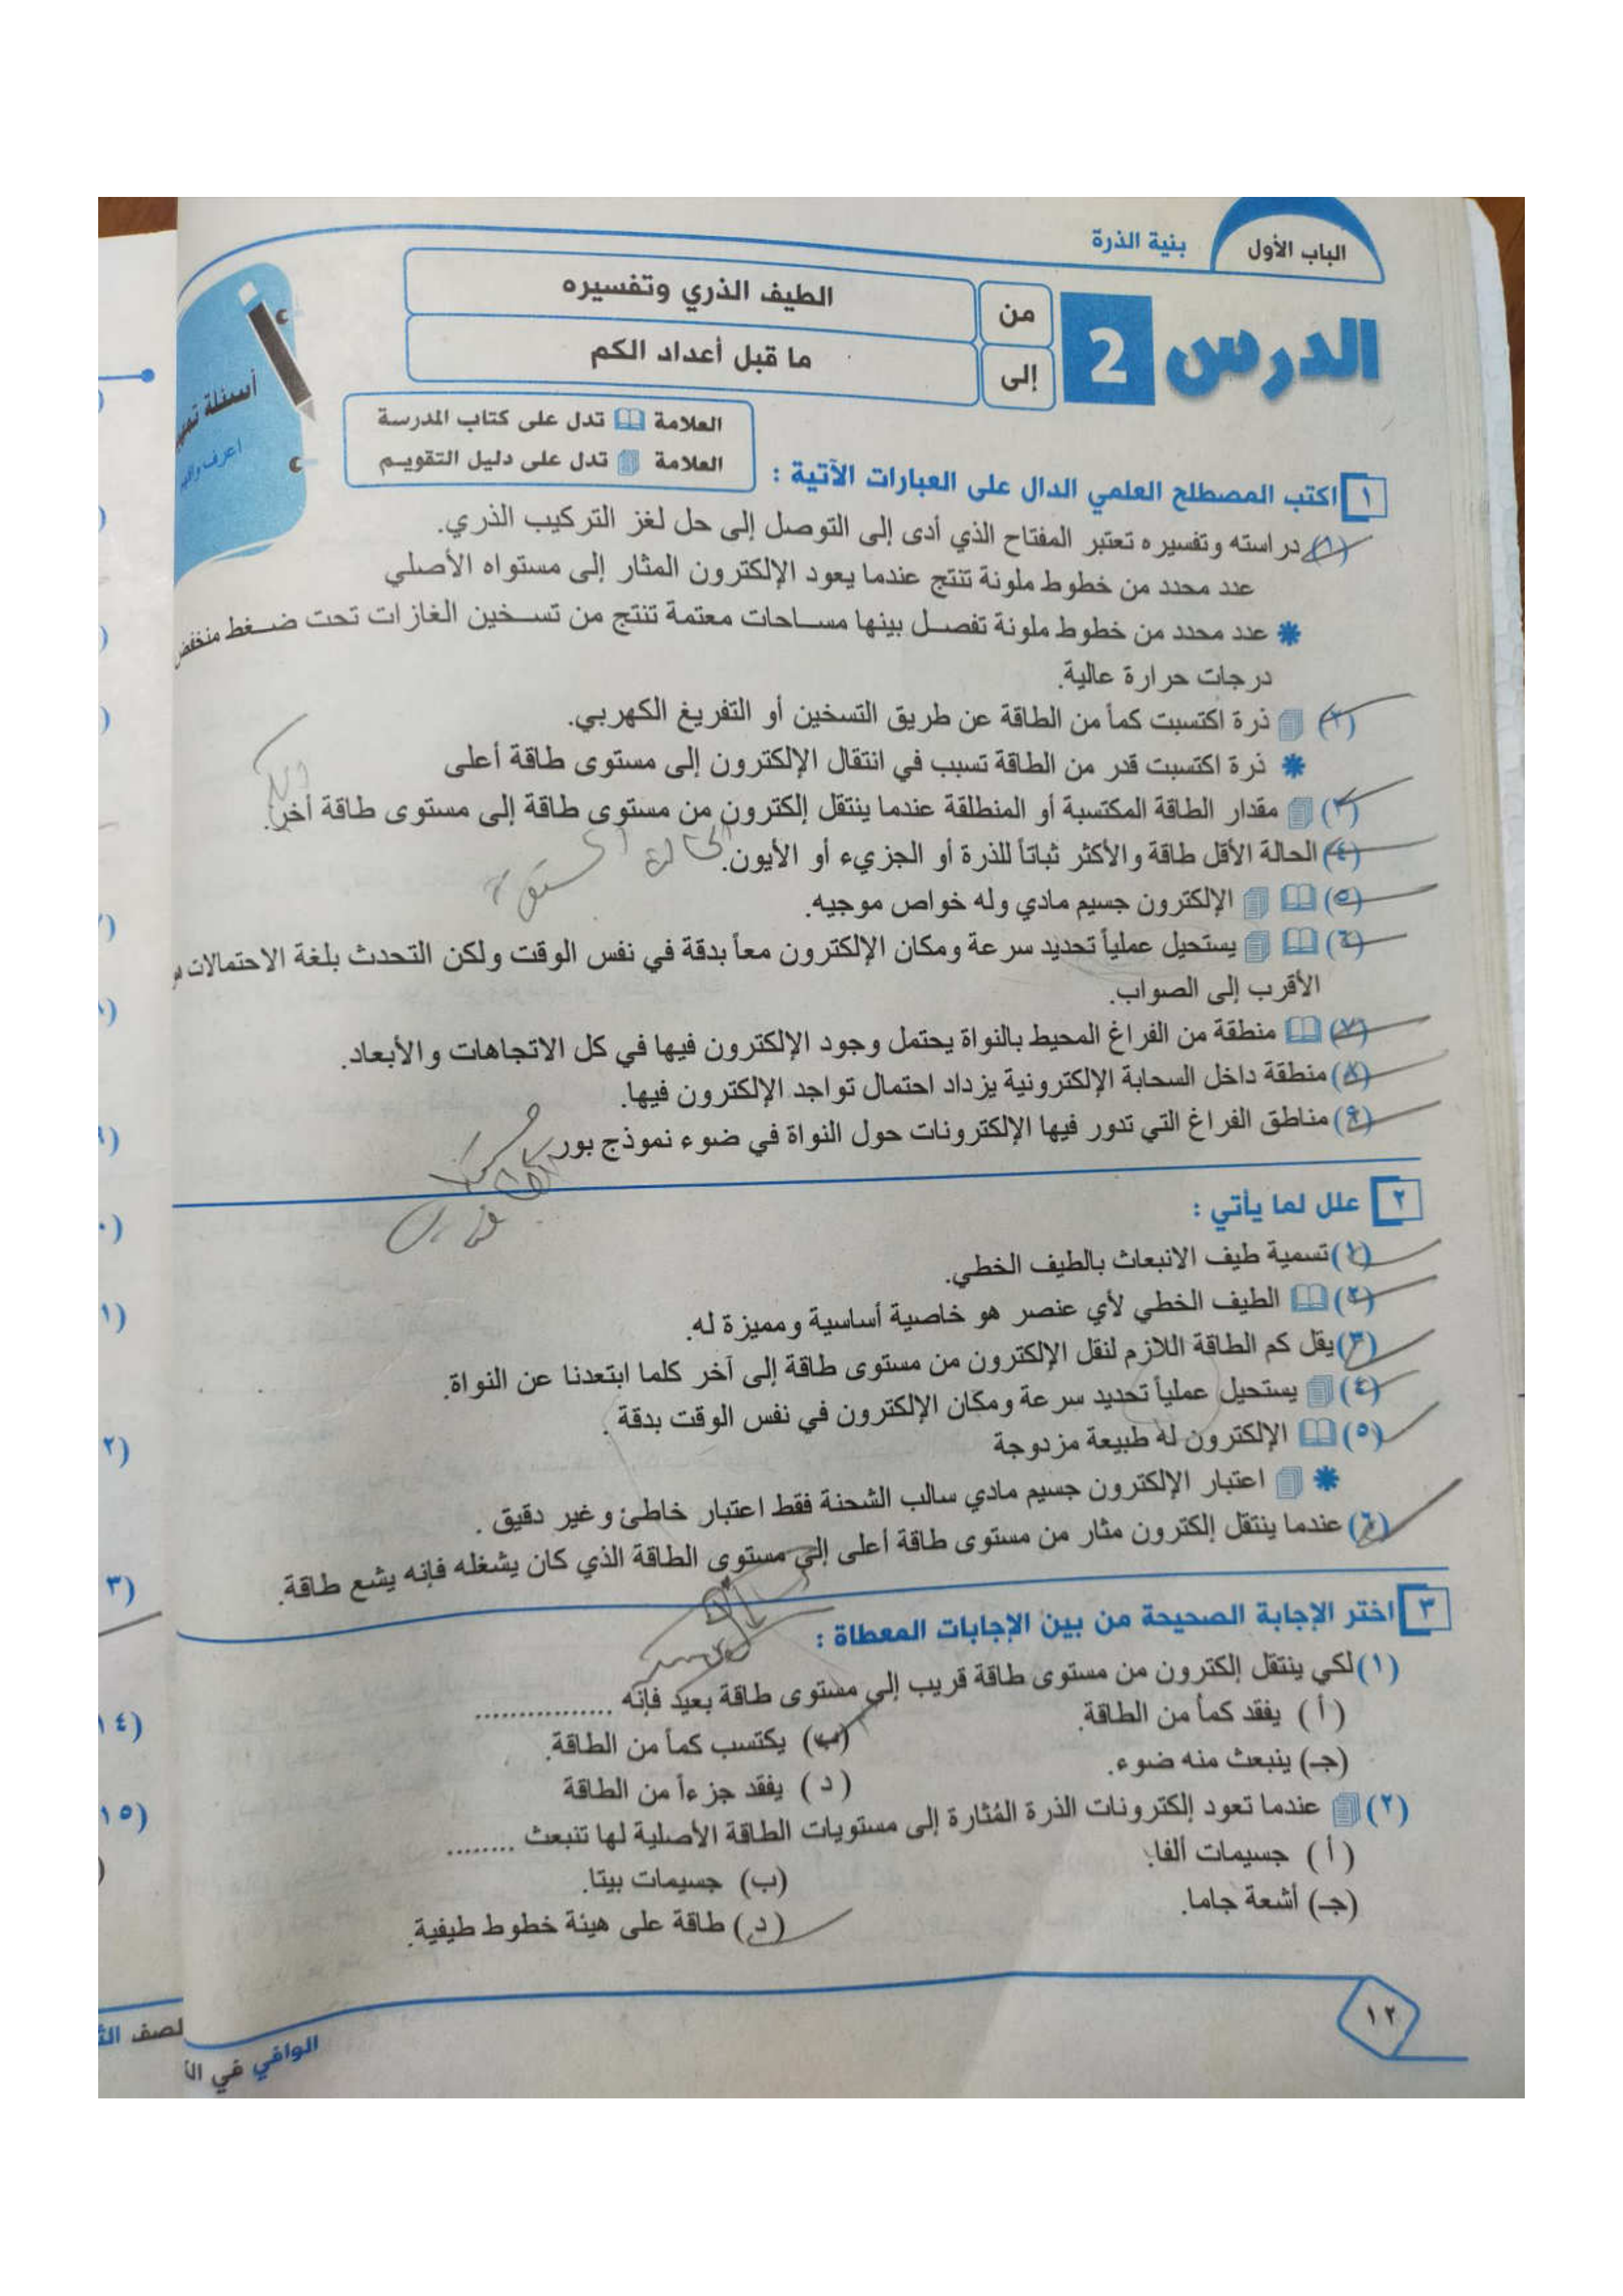 الباب الأول
بنية الذرة
الدرس 2
من
الطيف الذري وتفسيره
إلى
ما قبل أعداد الكم
أسئلة
اعرف
العلامة تدل على كتاب المدرسة
العلامة تدل على دليل التقويم
١ اكتب المصطلح العلمي الدال على العبارات الآتية :
(١) دراسته وتفسيره تعتبر المفتاح الذي أدى إلى التوصل إلى حل لغز التركيب الذري.
عدد محدد من خطوط ملونة تنتج عندما يعود الإلكترون المثار إلى مستواه الأصلي
عدد محدد من خطوط ملونة تفصل بينها مساحات معتمة تنتج من تسخين الغازات تحت ضغط منخفض
درجات حرارة عالية.
(٢) ذرة اكتسبت كماً من الطاقة عن طريق التسخين أو التفريغ الكهربي.
ذرة اكتسبت قدر من الطاقة تسبب في انتقال الإلكترون إلى مستوى طاقة أعلى
(٣) مقدار الطاقة المكتسبة أو المنطلقة عندما ينتقل إلكترون من مستوى طاقة إلى مستوى طاقة أخر.
(٤) الحالة الأقل طاقة والأكثر ثباتاً للذرة أو الجزيء أو الأيون.
(٥) الإلكترون جسيم مادي وله خواص موجيه.
(٦) يستحيل عملياً تحديد سرعة ومكان الإلكترون معاً بدقة في نفس الوقت ولكن التحدث بلغة الاحتمالات
الأقرب إلى الصواب.
(٧) منطقة من الفراغ المحيط بالنواة يحتمل وجود الإلكترون فيها في كل الاتجاهات والأبعاد.
(٨) منطقة داخل السحابة الإلكترونية يزداد احتمال تواجد الإلكترون فيها.
(٩) مناطق الفراغ التي تدور فيها الإلكترونات حول النواة في ضوء نموذج بور
٢ علل لما يأتي :
(١) تسمية طيف الانبعاث بالطيف الخطي.
(٢) الطيف الخطي لأي عنصر هو خاصية أساسية ومميزة له.
(٣) يقل كم الطاقة اللازم لنقل الإلكترون من مستوى طاقة إلى آخر كلما ابتعدنا عن النواة.
(٤) يستحيل عملياً تحديد سرعة ومكان الإلكترون في نفس الوقت بدقة .
(٥) الإلكترون له طبيعة مزدوجة
اعتبار الإلكترون جسيم مادي سالب الشحنة فقط اعتبار خاطئ وغير دقيق .
(٦) عندما ينتقل إلكترون مثار من مستوى طاقة أعلى إلى مستوى الطاقة الذي كان يشغله فإنه يشع طاقة.
٣ اختر الإجابة الصحيحة من بين الإجابات المعطاة :
(١) لكي ينتقل إلكترون من مستوى طاقة قريب إلى مستوى طاقة بعيد فإنه ................
(أ) يفقد كماً من الطاقة.
(ب) يكتسب كماً من الطاقة.
(جـ) ينبعث منه ضوء.
(د) يفقد جزءاً من الطاقة
(٢) عندما تعود إلكترونات الذرة المُثارة إلى مستويات الطاقة الأصلية لها تنبعث ........
(أ) جسيمات ألفا.
(ب) جسيمات بيتا.
(جـ) أشعة جاما.
(د) طاقة على هيئة خطوط طيفية.
١٢
الوافي في